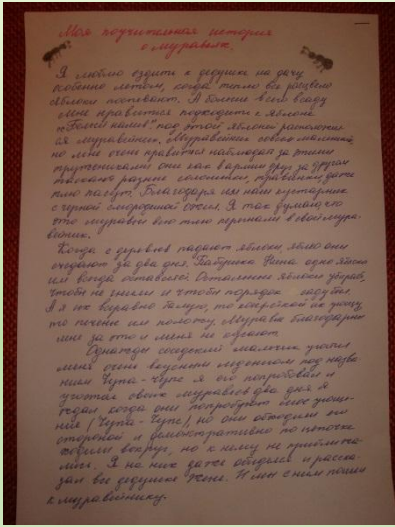 Моя поучительная история
о муравьях.
Я люблю ездить к дедушке на дачу
особенно летом, когда тепло все зацвело
яблоки поспевают. А больше всего в саду
мне нравится подходить к яблоне
под этой яблоней расположил
ся муравейник. Муравейник совсем маленький,
но мне очень нравится наблюдать за этими
тружениками они как в армии друг за другом
разные соломинки, травинки, даже
тлю пасут. Благодаря им наш кустарник
с черной смородиной ожил. Я так думаю, что
это муравьи всю тлю перенали в свой мура-
вейник.
Когда с деревьев падают яблоки, яблоко они
съедают за два дня. Бабушка одно яблоко
им всегда оставляет. Остальные яблоки убираем,
чтоб не гнили и чтобы порядок был.
А я их всеравно балую, то конфеткой их угощу,
то печенье им положу. Муравьи благодарны
мне за это и меня не кусают.
Однажды соседский мальчик угостил
меня очень вкусным леденцом под назва
нием Чупа-Чупс я его попробовал и
угостил своих муравьев два дня я
ждал когда они попробуют мое угоще-
ние (Чупа-Чупс), но они обходили его
стороной и демонстративно по цепочке
ходили вокруг, но к нему не приближа-
лись. Я на них даже обиделся и расска-
зал все дедушке Жене. И мы с ним пошли
к муравейнику.